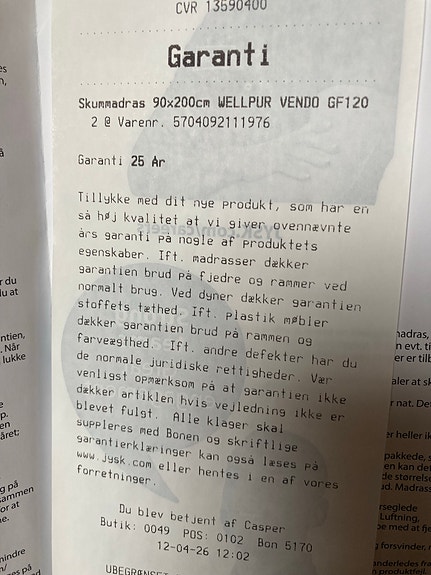 CVR 13590400
Garanti
Skummadras 90x200cm WELLPUR VENDO GF120
2 @ Varenr. 5704092111976
Garanti 25 År
Tillykke med dit nye produkt, som har en
så høj kvalitet at vi giver ovennævnte
års garanti på nogle af produktets
egenskaber. Ift. madrasser dækker
garantien brud på fjedre og rammer ved
normalt brug. Ved dyner dækker garantien
stoffets tæthed. Ift. plastik møbler
dækker garantien brud på rammen og
farveægthed. Ift. andre defekter har du
de normale juridiske rettigheder. Vær
venligst opmærksom på at garantien ikke
dækker artiklen hvis vejledning ikke er
blevet fulgt. Alle klager skal
suppleres med Bonen og skriftlige
garantierklæringer kan også læses på
www.jysk.com eller hentes i en af vores
forretninger.
Du blev betjent af Casper
Butik: 0049 POS: 0102 Bon 5170
12-04-26 12:02
UBEGRÆNSET